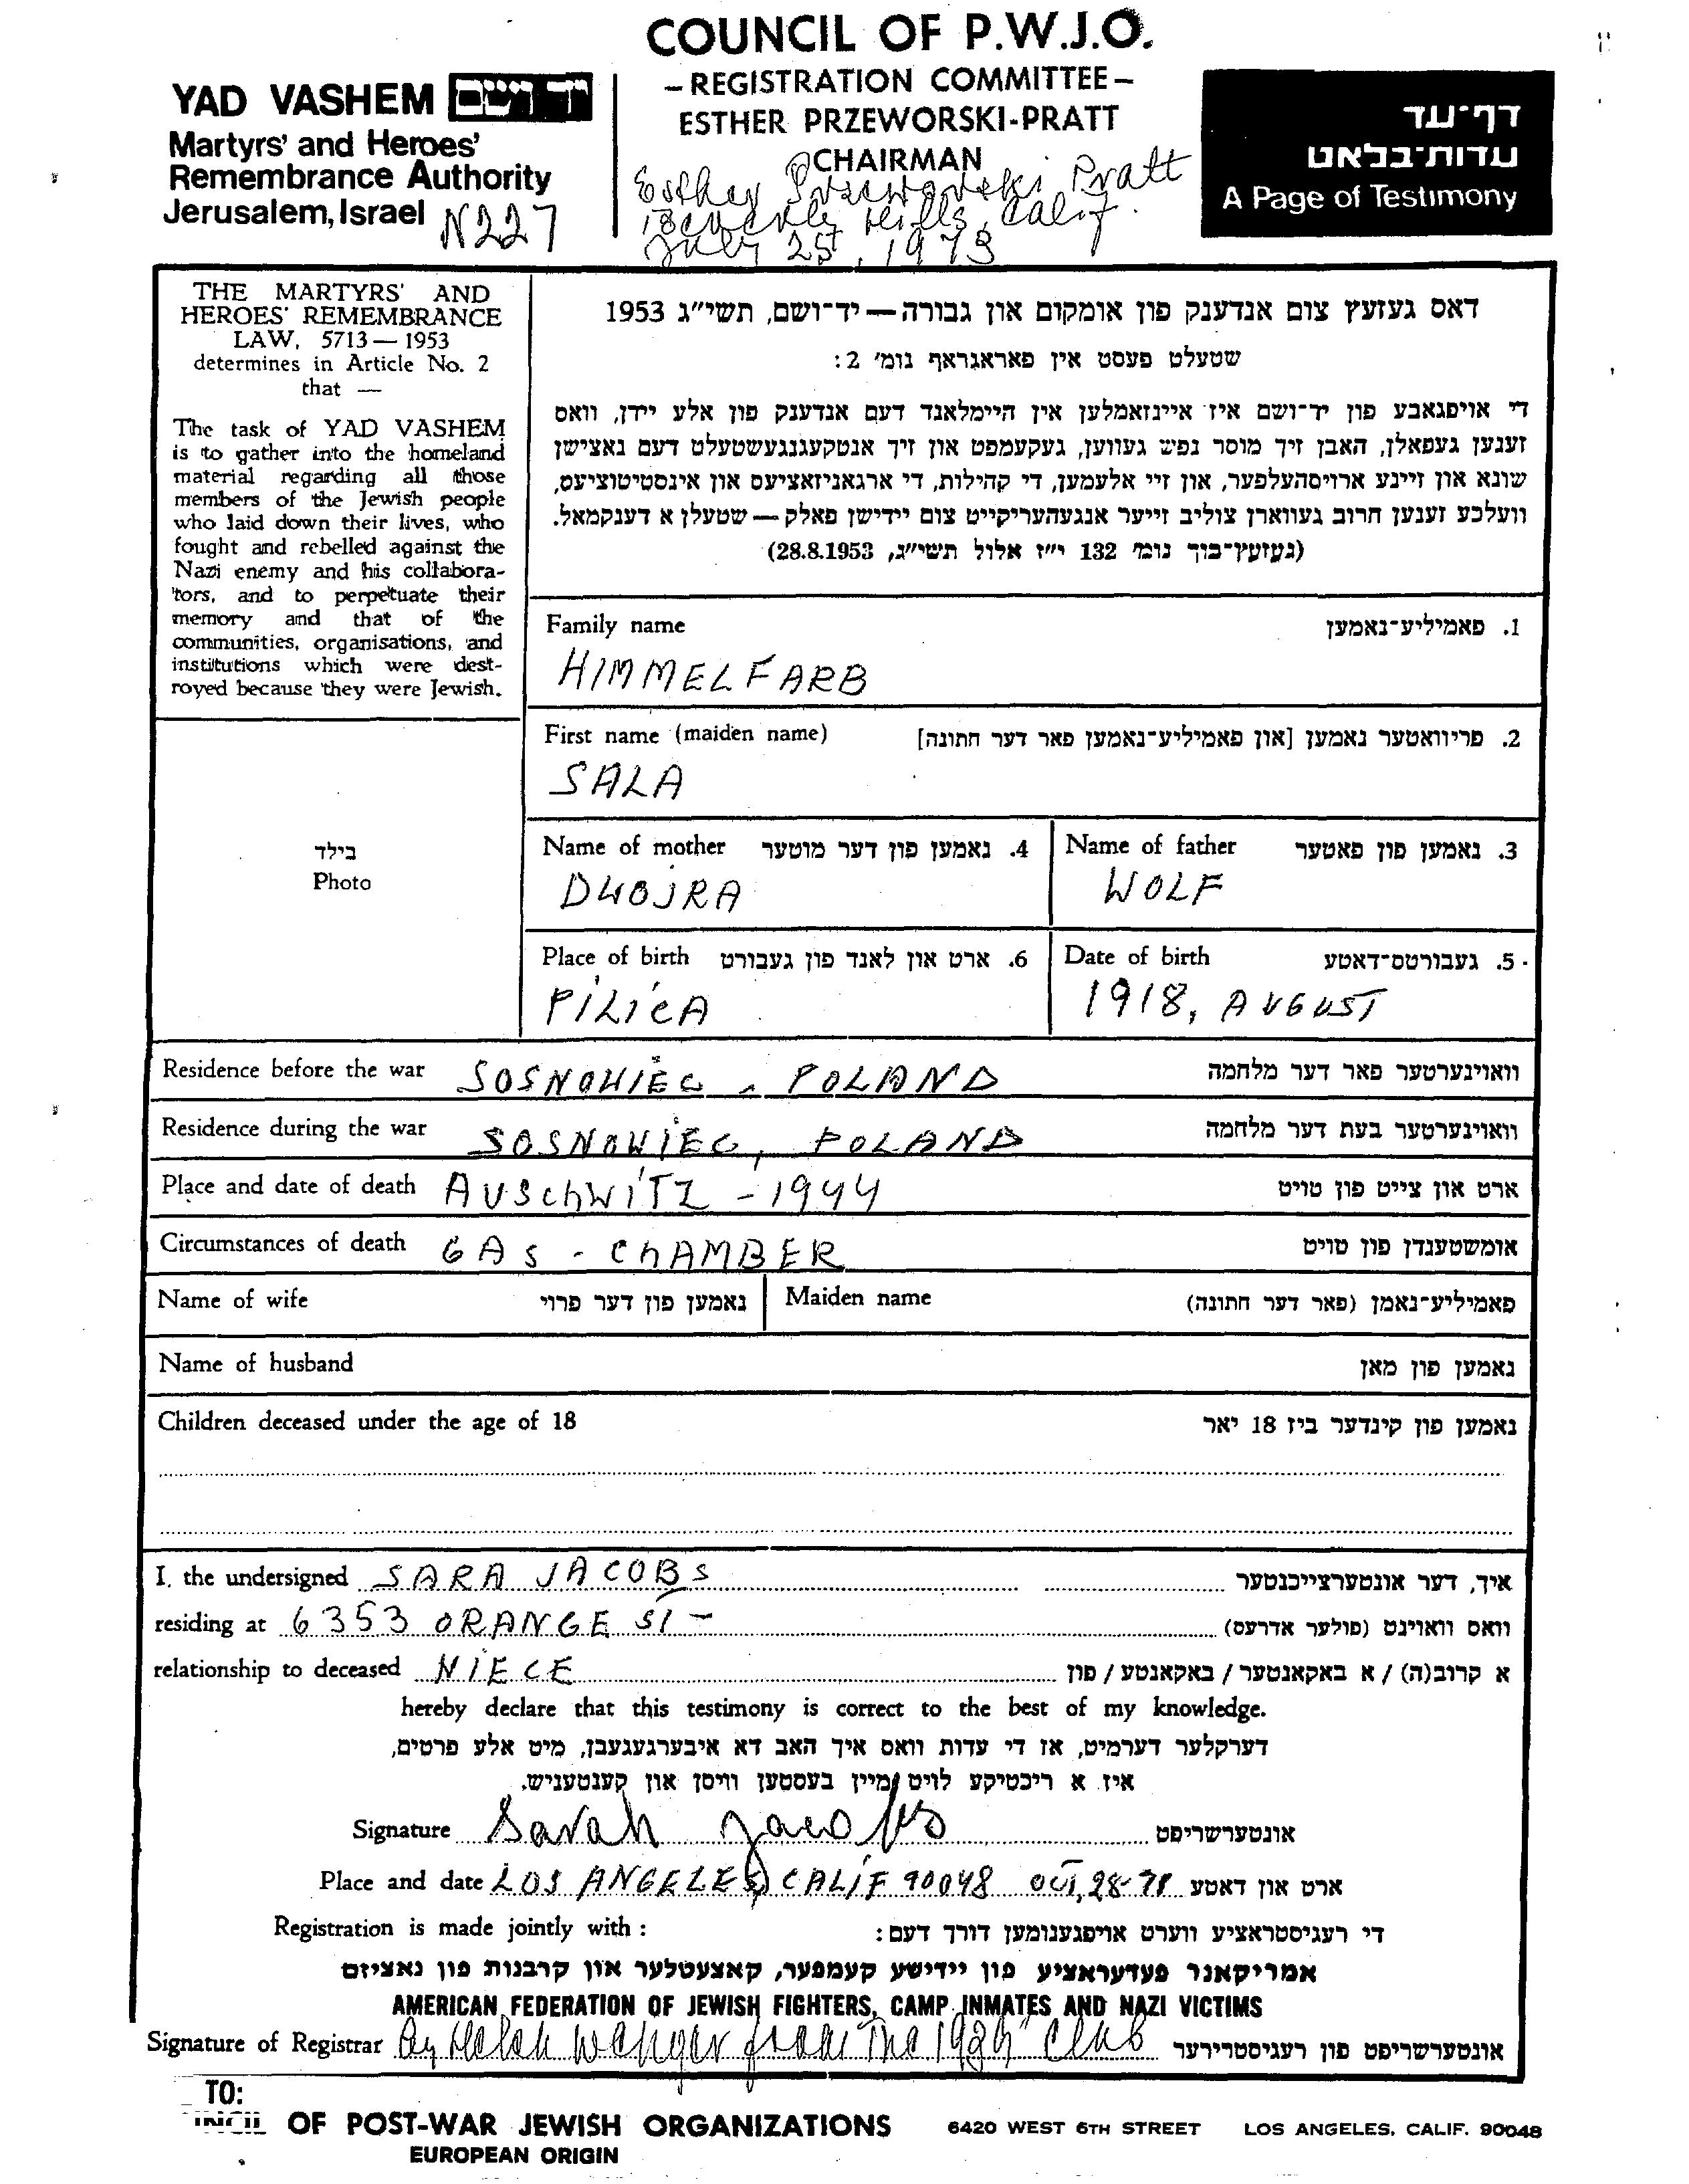 COUNCIL OF P.W.J.O.
– REGISTRATION COMMITTEE –
ESTHER PRZEWORSKI-PRATT
CHAIRMAN
Esther Przeworski Pratt
Beverly Hills, Calif.
July 25, 1973
YAD VASHEM יד ושם
Martyrs' and Heroes'
Remembrance Authority
Jerusalem, Israel N227
דף־עד
עדות־בלאט
A Page of Testimony
THE MARTYRS' AND
HEROES' REMEMBRANCE
LAW, 5713 — 1953
determines in Article No. 2
that —
The task of YAD VASHEM
is to gather into the homeland
material regarding all those
members of the Jewish people
who laid down their lives, who
fought and rebelled against the
Nazi enemy and his collabora-
tors, and to perpetuate their
memory and that of the
communities, organisations, and
institutions which were dest-
royed because they were Jewish.
דאס געזעץ צום אנדענק פון אומקום און גבורה — יד־ושם, תשי"ג 1953
שטעלט פעסט אין פאראגראף נומ' 2:
די אויפגאבע פון יד־ושם איז איינזאמלען אין היימלאנד דעם אנדענק פון אלע יידן, וואס
זענען געפאלן, האבן זיך מוסר נפש געווען, געקעמפט און זיך אנטקעגנגעשטעלט דעם נאצישן
שונא און זיינע ארויסהעלפער, און זיי אלעמען, די קהילות, די ארגאניזאציעס און אינסטיטוציעס,
וועלכע זענען חרוב געווארן צוליב זייער אנגעהעריקייט צום יידישן פאלק — שטעלן א דענקמאל.
(געזעץ־בוך נומ' 132 י"ז אלול תשי"ג, 28.8.1953)
Family name 1. פאמיליע־נאמען
HIMMELFARB
First name (maiden name) 2. פריוואטער נאמען [און פאמיליע־נאמען פאר דער חתונה]
SALA
בילד
Photo
Name of mother 4. נאמען פון דער מוטער Name of father 3. נאמען פון פאטער
DWOJRA WOLF
Place of birth 6. ארט און לאנד פון געבורט Date of birth 5. געבורטס־דאטע
PILICA 1918, AUGUST
Residence before the war SOSNOWIEC, POLAND וואוינערטער פאר דער מלחמה
Residence during the war SOSNOWIEC, POLAND וואוינערטער בעת דער מלחמה
Place and date of death AUSCHWITZ - 1944 ארט און צייט פון טויט
Circumstances of death GAS - CHAMBER אומשטענדן פון טויט
Name of wife נאמען פון דער פרוי Maiden name פאמיליע־נאמן (פאר דער חתונה)
Name of husband נאמען פון מאן
Children deceased under the age of 18 נאמען פון קינדער ביז 18 יאר
I, the undersigned SARA JACOBS איך, דער אונטערצייכנטער
residing at 6353 ORANGE ST - וואס וואוינט (פולער אדרעס)
relationship to deceased NIECE א קרוב(ה) / א באקאנטער / באקאנטע / פון
hereby declare that this testimony is correct to the best of my knowledge.
דערקלער דערמיט, אז די עדות וואס איך האב דא איבערגעגעבן, מיט אלע פרטים,
איז א ריכטיקע לויט מיין בעסטען וויסן און קענטעניש.
Signature Sarah Jacobs אונטערשריפט
Place and date LOS ANGELES, CALIF 90048 OCT, 28-71 ארט און דאטע
Registration is made jointly with : די רעגיסטראציע ווערט אויפגענומען דורך דעם:
אמריקאנר פעדעראציע פון יידישע קעמפער, קאצעטלער און קרבנות פון נאציזם
AMERICAN FEDERATION OF JEWISH FIGHTERS, CAMP INMATES AND NAZI VICTIMS
Signature of Registrar By from The 1939 Club אונטערשריפט פון רעגיסטרירער
TO:
OF POST-WAR JEWISH ORGANIZATIONS 6420 WEST 6TH STREET LOS ANGELES, CALIF. 90048
EUROPEAN ORIGIN